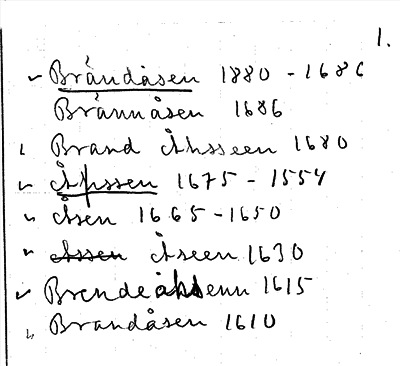 1.
Brändåsen 1880 - 1686
Brännåsen 1686
Brand Åhsseen 1680
Åhssen 1675 - 1554
Åsen 1665 - 1650
Assen Åseen 1630
Brendeåhsenn 1615
Brandåsen 1610